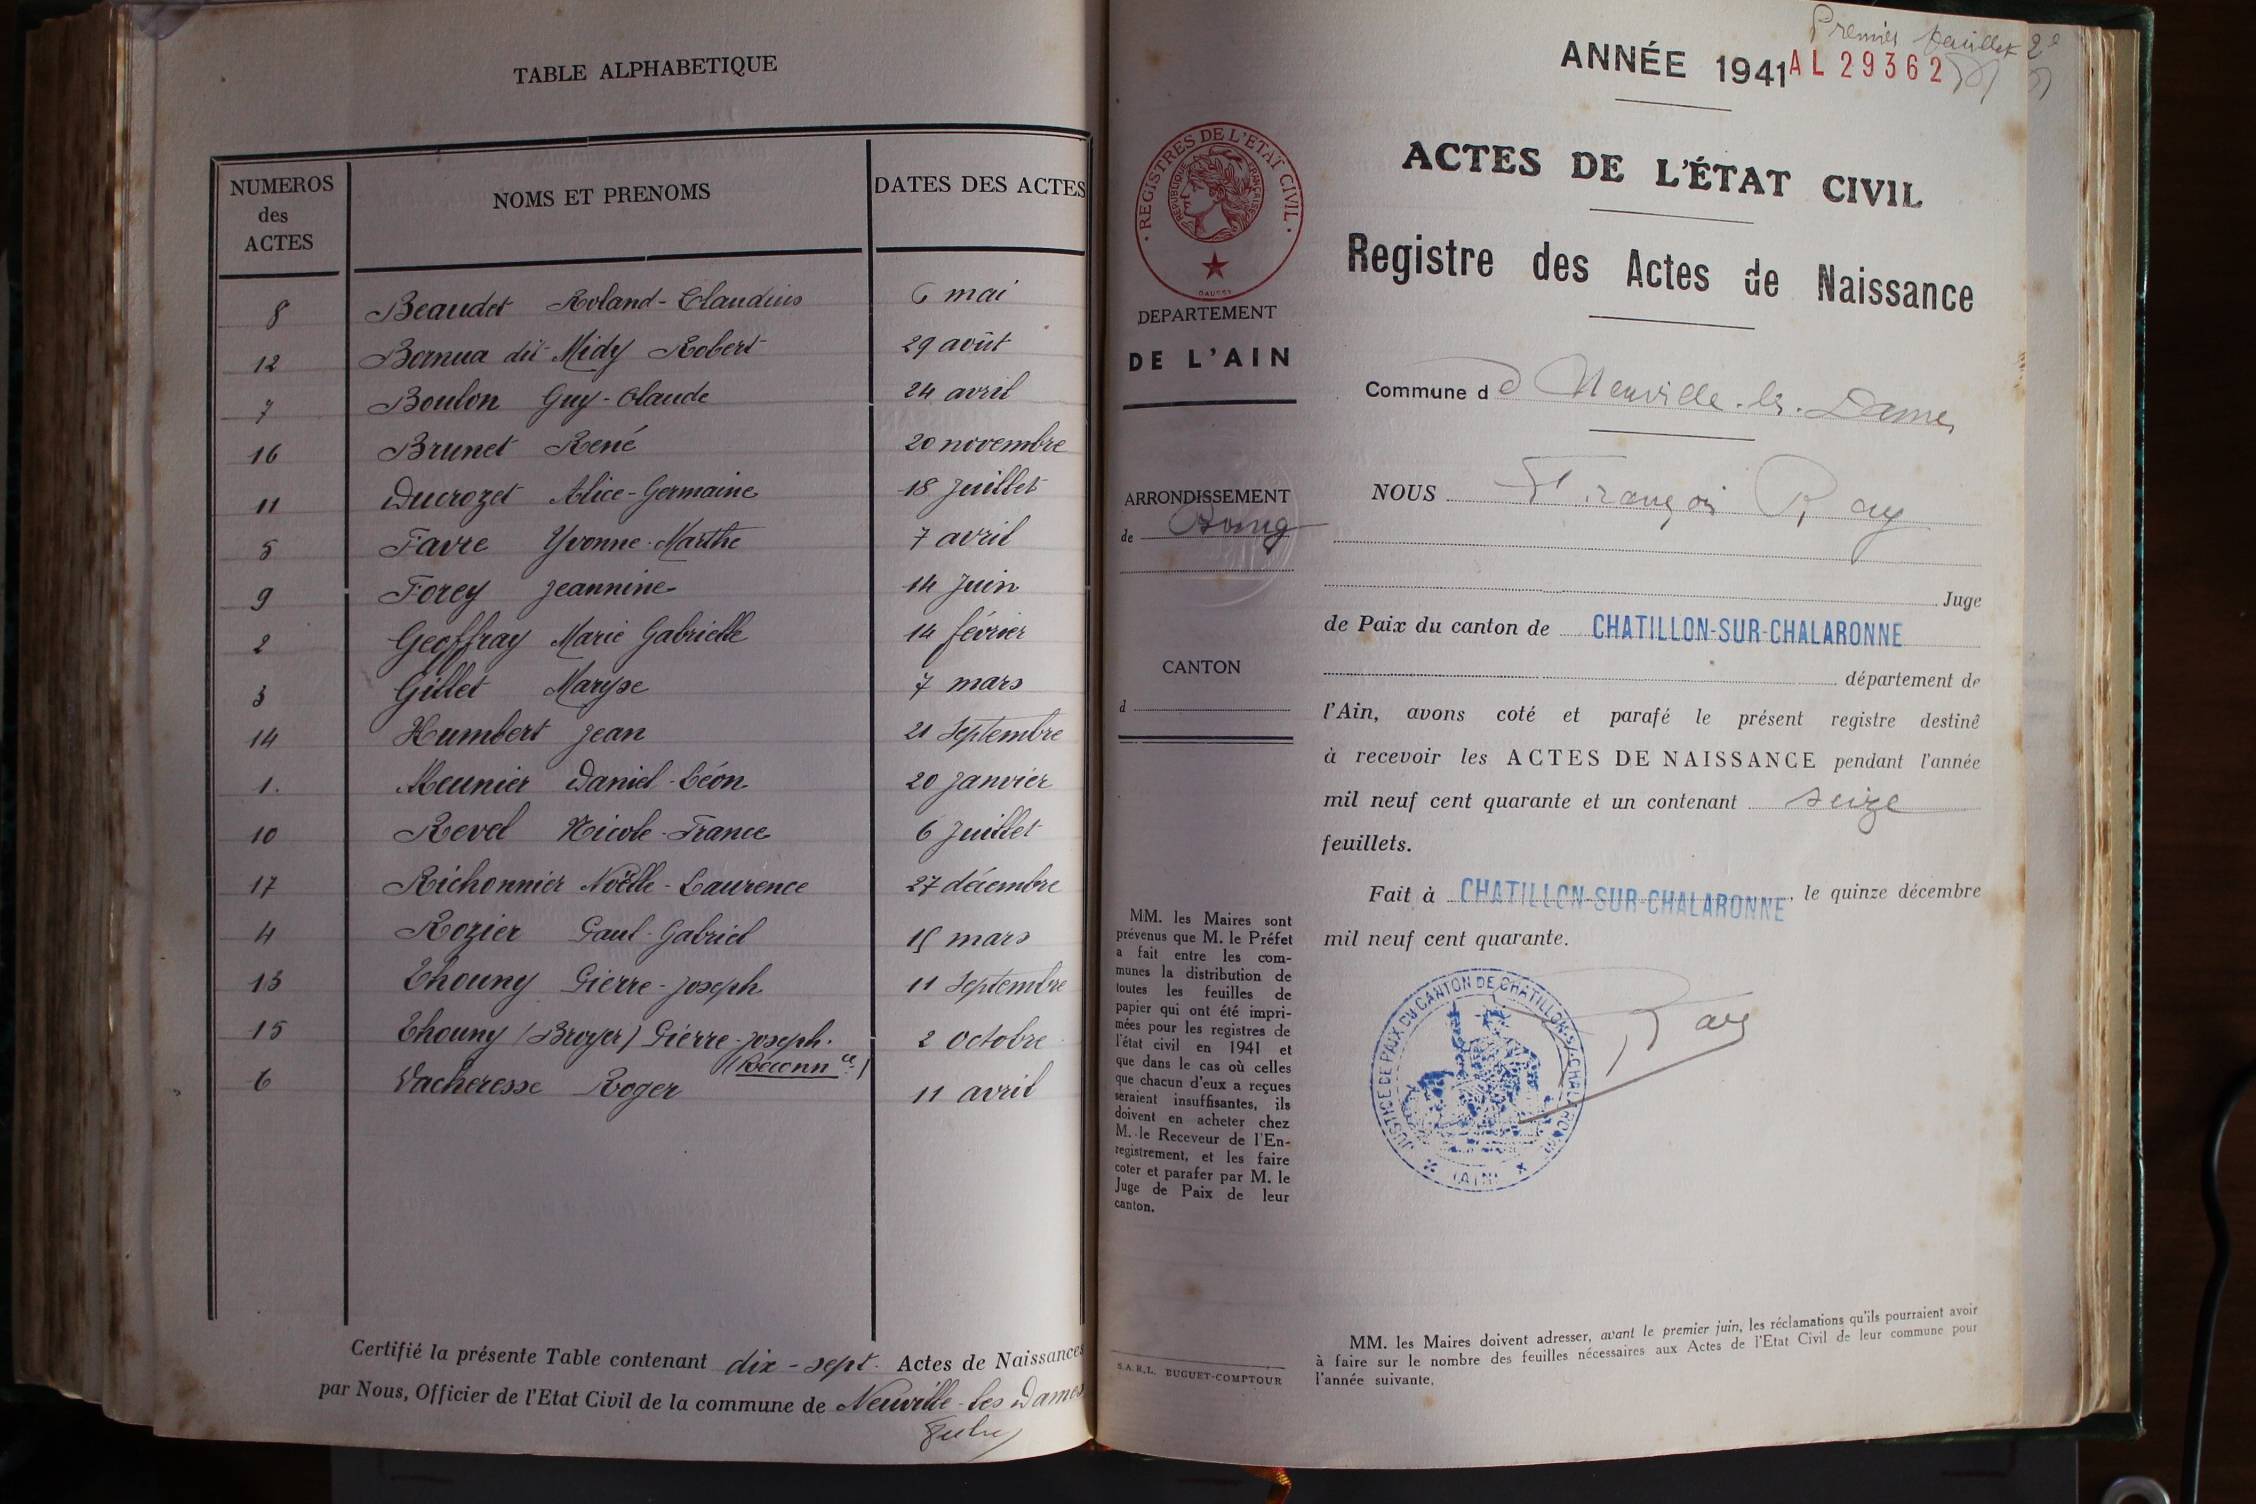 TABLE ALPHABETIQUE
NUMEROS des ACTES
NOMS ET PRENOMS
DATES DES ACTES
8 Beaudet Roland-Claudius 6 mai
12 dit Midy Robert 29 août
7 Boulon Guy-Claude 24 avril
16 Brunet René 20 novembre
11 Ducrozet Alice-Germaine 18 Juillet
5 Favre Yvonne-Marthe 7 avril
9 Forey Jeannine 14 Juin
2 Geoffray Marie Gabrielle 14 février
3 Gillet Maryse 7 mars
14 Humbert Jean 21 Septembre
1. Meunier Daniel-Léon 20 Janvier
10 Revel Nicole-France 6 Juillet
17 Richonnier Noëlle-Laurence 27 décembre
4 Rozier Paul-Gabriel 15 mars
13 Thouny Pierre-Joseph 11 Septembre
15 Thouny (Broyer) Pierre-Joseph. 2 Octobre
(Reconnce)
6 Vacheresse Roger 11 avril
Certifié la présente Table contenant dix-sept Actes de Naissances
par Nous, Officier de l'Etat Civil de la commune de Neuville-les Dames
Premier feuillet 2e
ANNÉE 1941 AL 29362
REGISTRES DE L'ETAT CIVIL
REPUBLIQUE FRANÇAISE
ACTES DE L'ÉTAT CIVIL
Registre des Actes de Naissance
DEPARTEMENT
DE L'AIN
Commune de Neuville-les-Dames
ARRONDISSEMENT
de Bourg
NOUS François Ray
Juge
de Paix du canton de CHATILLON-SUR-CHALARONNE
CANTON
d
département de
l'Ain, avons coté et parafé le présent registre destiné
à recevoir les ACTES DE NAISSANCE pendant l'année
mil neuf cent quarante et un contenant seize
feuillets.
Fait à CHATILLON-SUR-CHALARONNE, le quinze décembre
mil neuf cent quarante.
MM. les Maires sont
prévenus que M. le Préfet
a fait entre les com-
munes la distribution de
toutes les feuilles de
papier qui ont été impri-
mées pour les registres de
l'état civil en 1941 et
que dans le cas où celles
que chacun d'eux a reçues
seraient insuffisantes, ils
doivent en acheter chez
M. le Receveur de l'En-
registrement, et les faire
coter et parafer par M. le
Juge de Paix de leur
canton.
JUSTICE DE PAIX DU CANTON DE CHATILLON-S/-CHALARONNE
(AIN)
Ray
MM. les Maires doivent adresser, avant le premier juin, les réclamations qu'ils pourraient avoir
à faire sur le nombre des feuilles nécessaires aux Actes de l'Etat Civil de leur commune pour
l'année suivante.
S.A.R.L. BUGUET-COMPTOUR